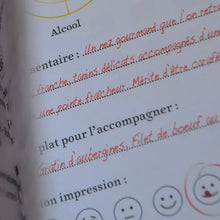 Alcool
mentaire : Un nez gourmand que l'on retro
franche, tanins délicats, accompagnés d'une
une pointe fraîcheur. Mérite d'être carafé
plat pour l'accompagner :
Gratin d'aubergines, Filet de boeuf au
on impression :